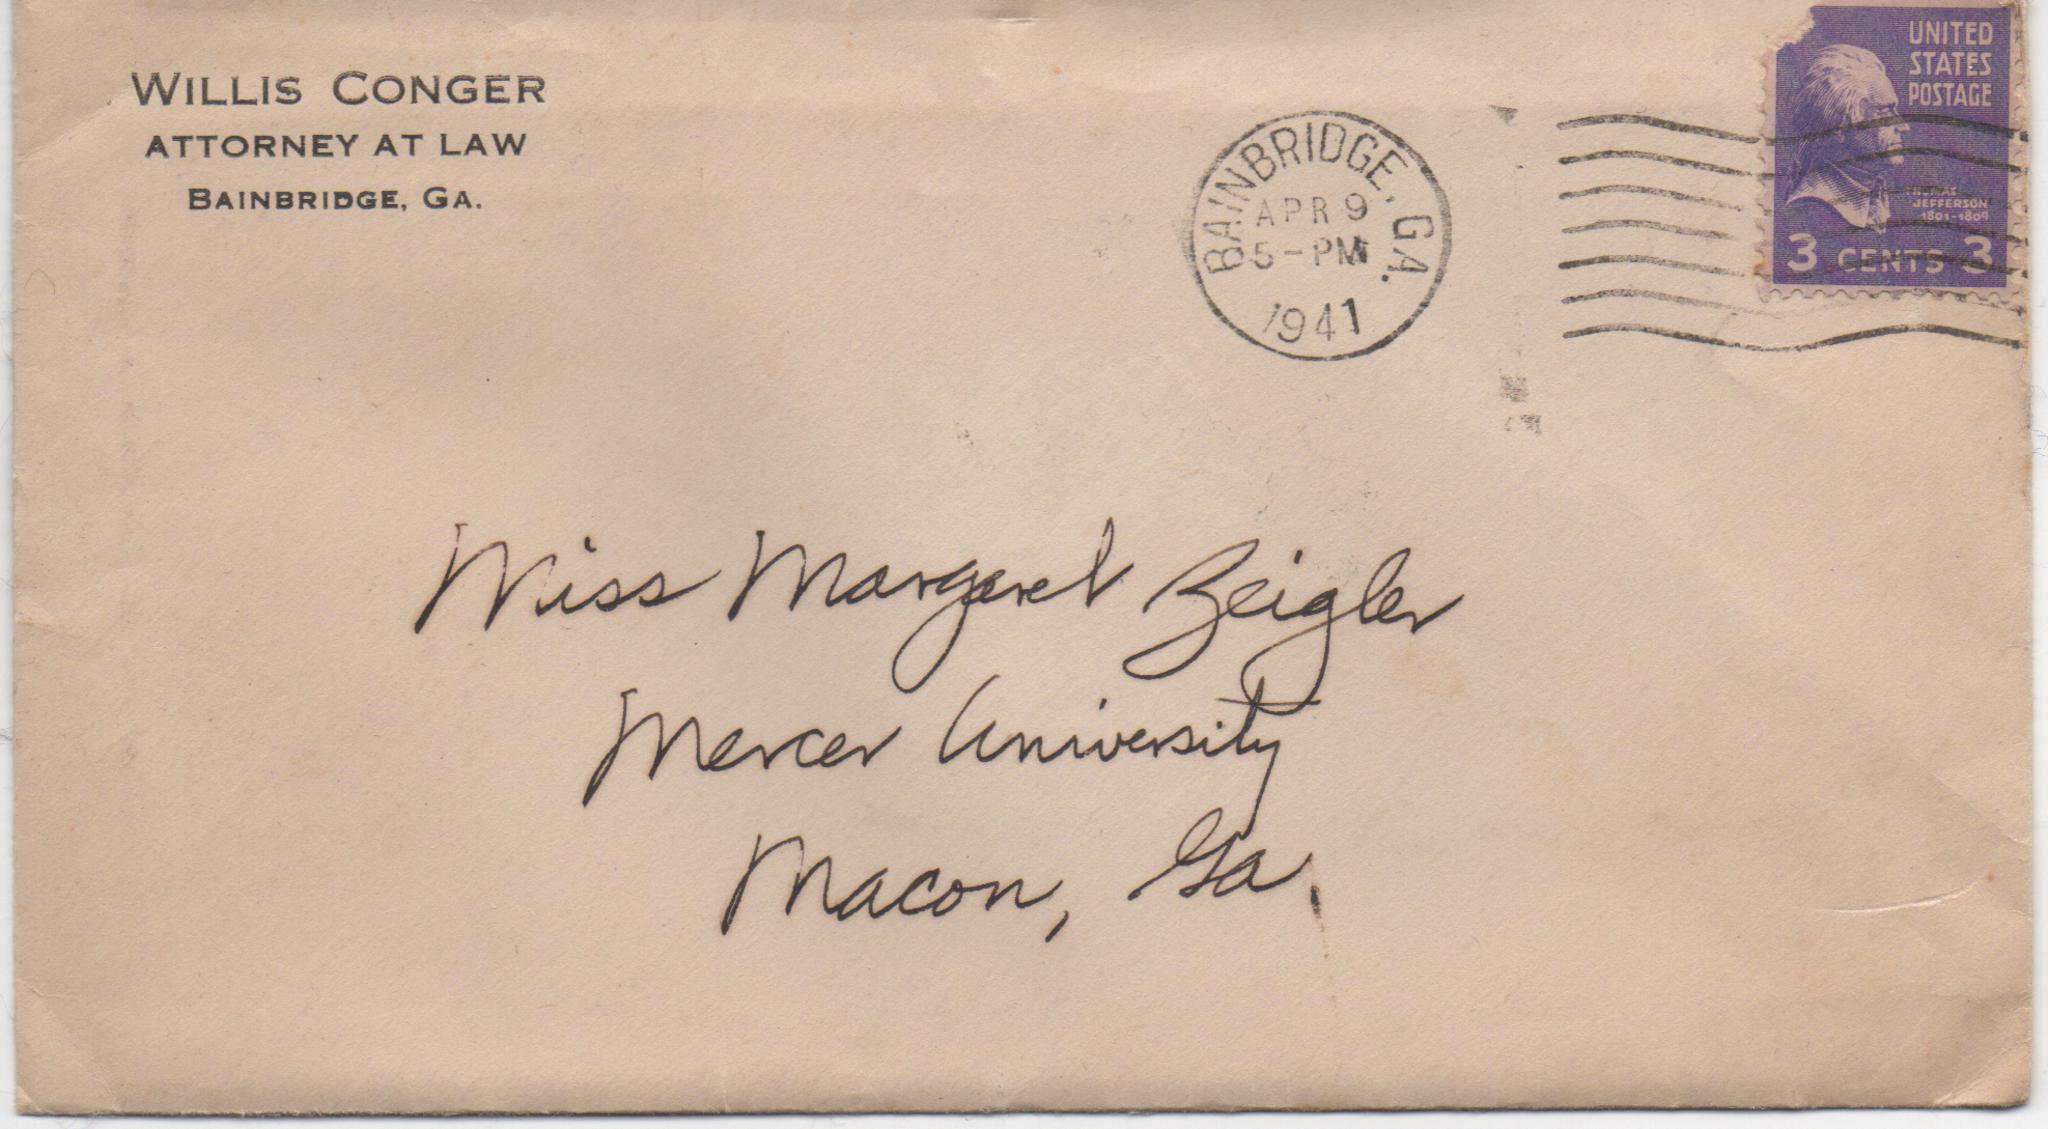 WILLIS CONGER
ATTORNEY AT LAW
BAINBRIDGE, GA.
BAINBRIDGE, GA.
APR 9
5-PM
1941
UNITED
STATES
POSTAGE
THOMAS
JEFFERSON
1801-1809
3 CENTS 3
Miss Margaret Zeigler
Mercer University
Macon, Ga.